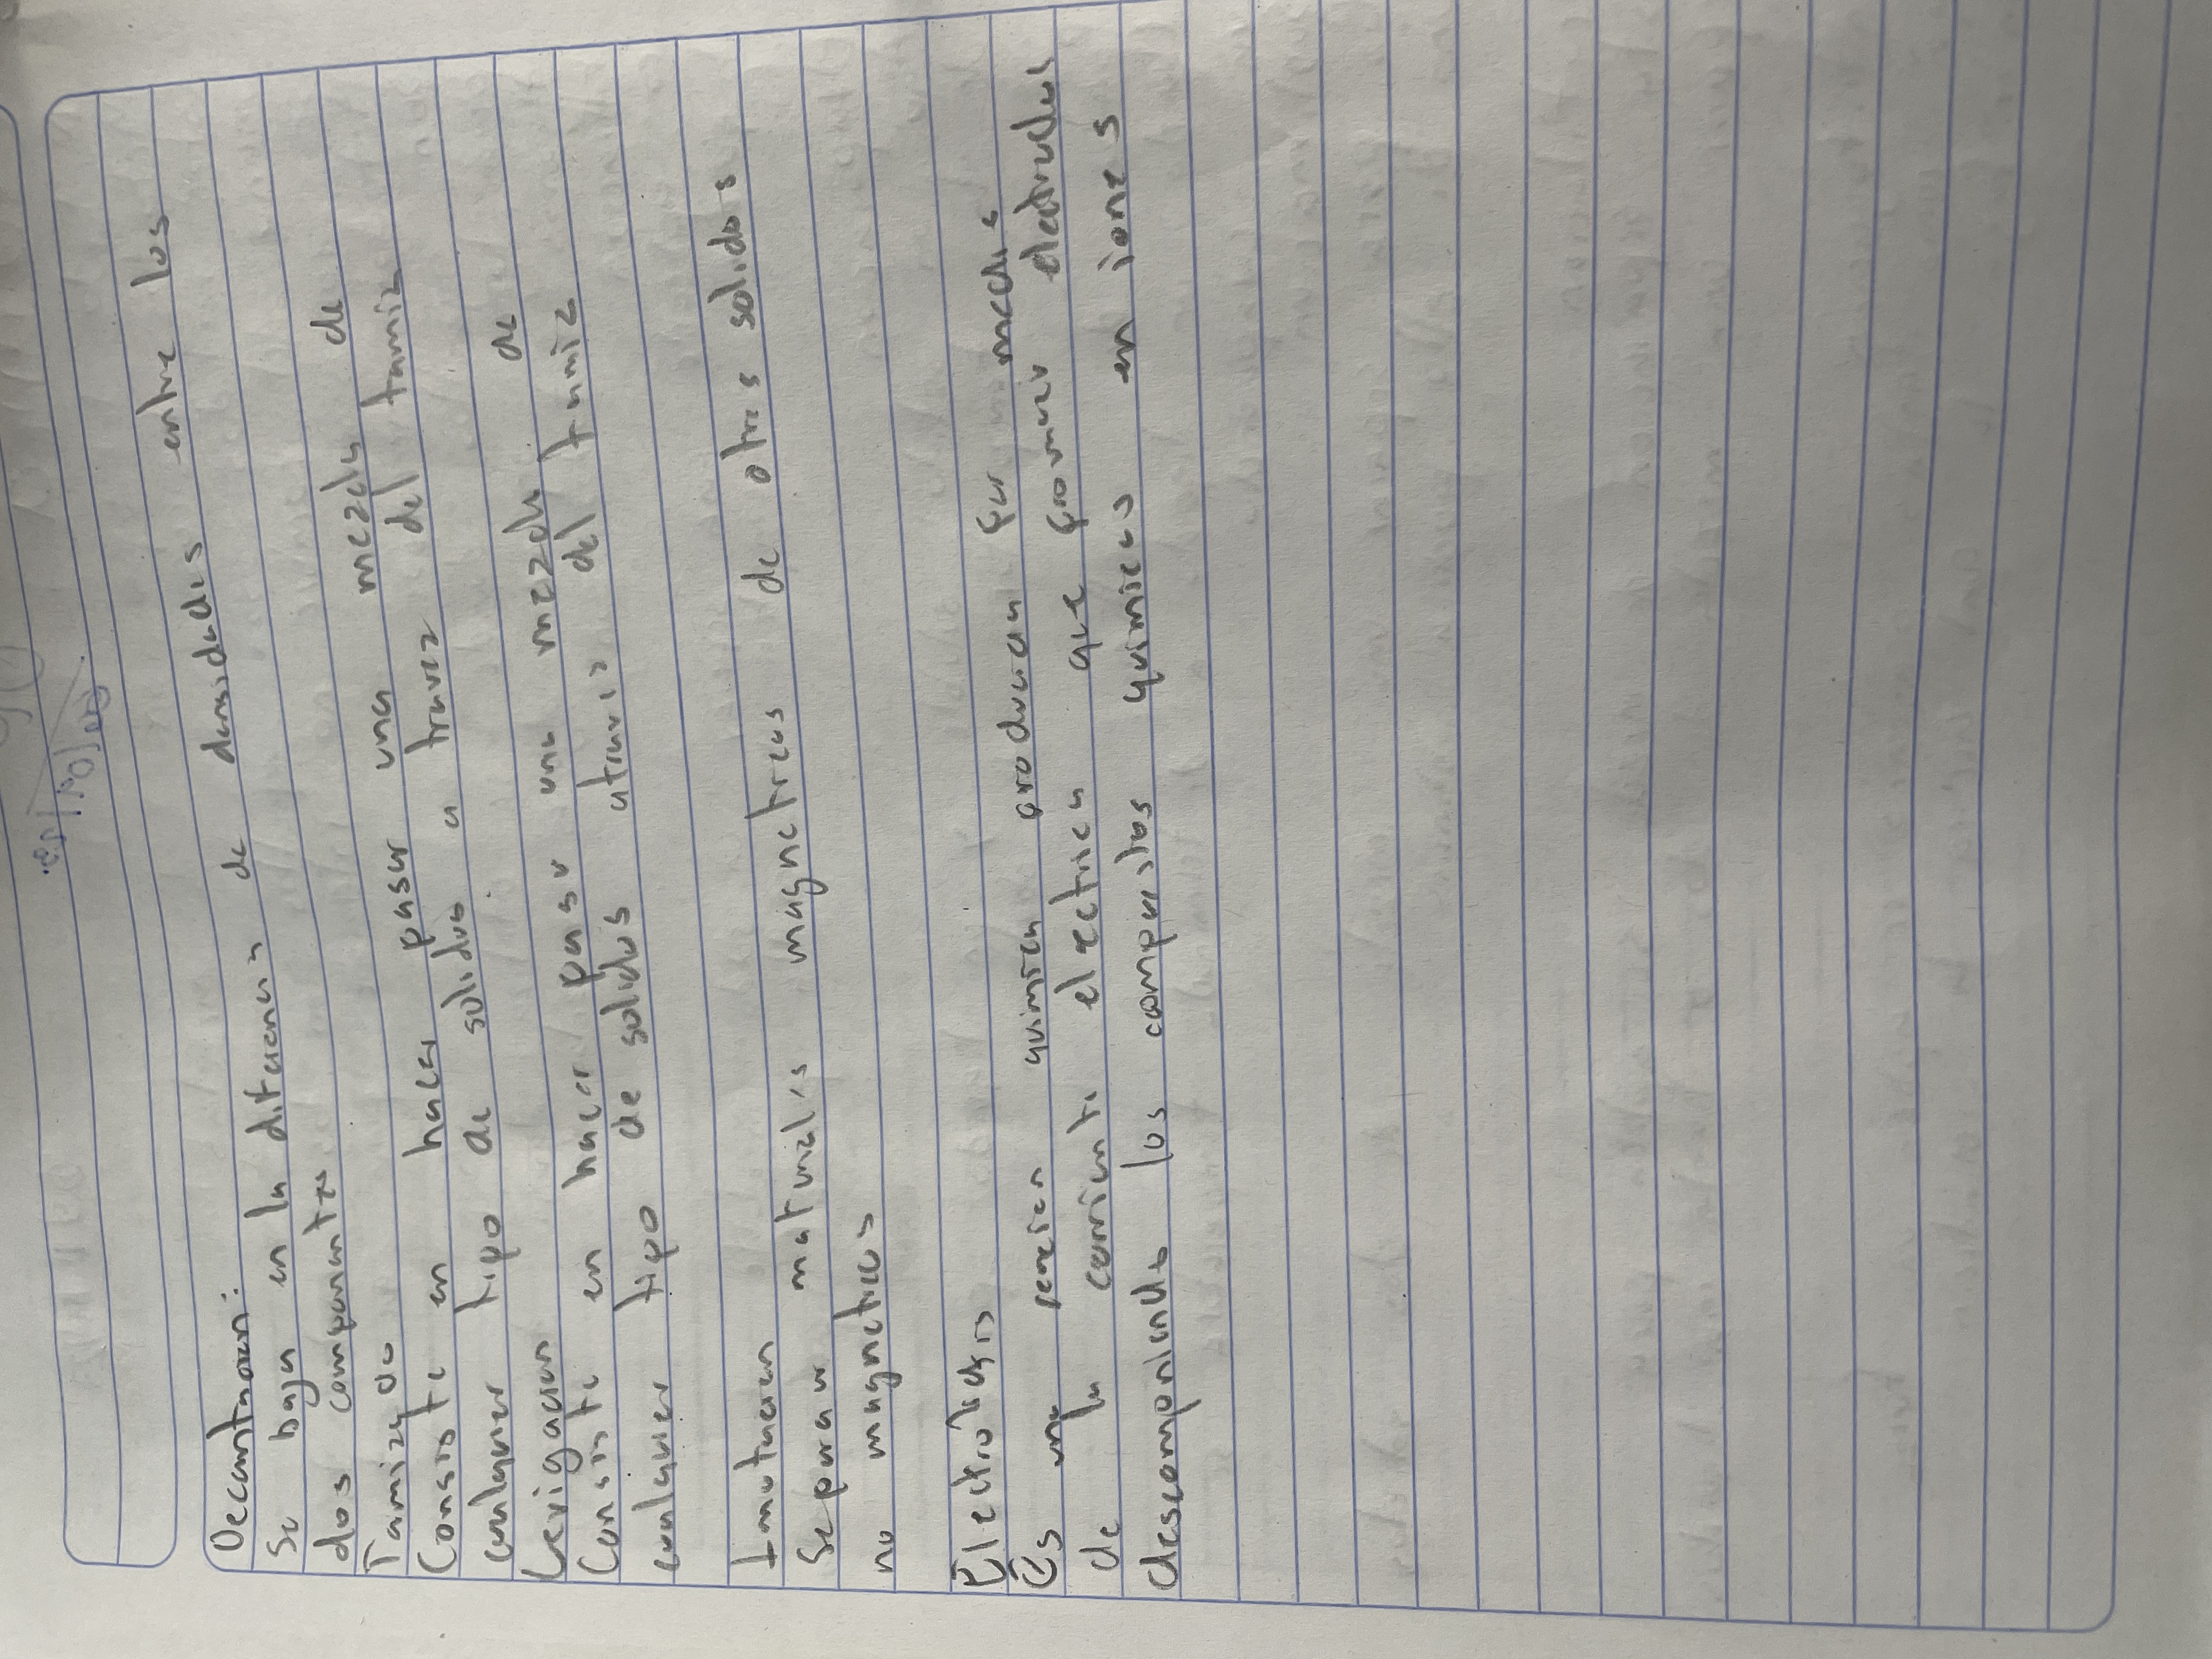 Decantacion:
Se baja en la diferencia de densidades entre los
dos componentes
Tamizado
Consiste en hacer pasar una mezcla de
cualquier tipo de solidos a travez del tamiz
Levigacion
Consiste en hacer pasar una mezcla de
cualquier tipo de solidos atravez del tamiz
Imantacion
Separar materiales magneticos de otros solidos
no magneticos
Electrolisis
Es una reacion quimica producida por medio
de la corriente electrica que proviener electrodos
descomponiendo los compuestos quimicos en iones